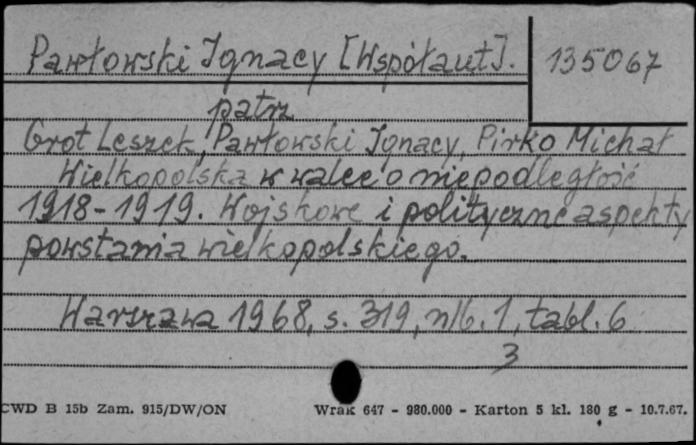 Pawłowski Ignacy [Współaut].
135067
patrz
Grot Leszek, Pawłowski Ignacy, Pirko Michał
Wielkopolska w walce o niepodległość
1918-1919. Wojskowe i polityczne aspekty
powstania wielkopolskiego.
Warszawa 1968, s. 319, nlb. 1, tabl. 6
3
CWD B 15b Zam. 915/DW/ON Wrak 647 - 980.000 - Karton 5 kl. 180 g - 10.7.67.